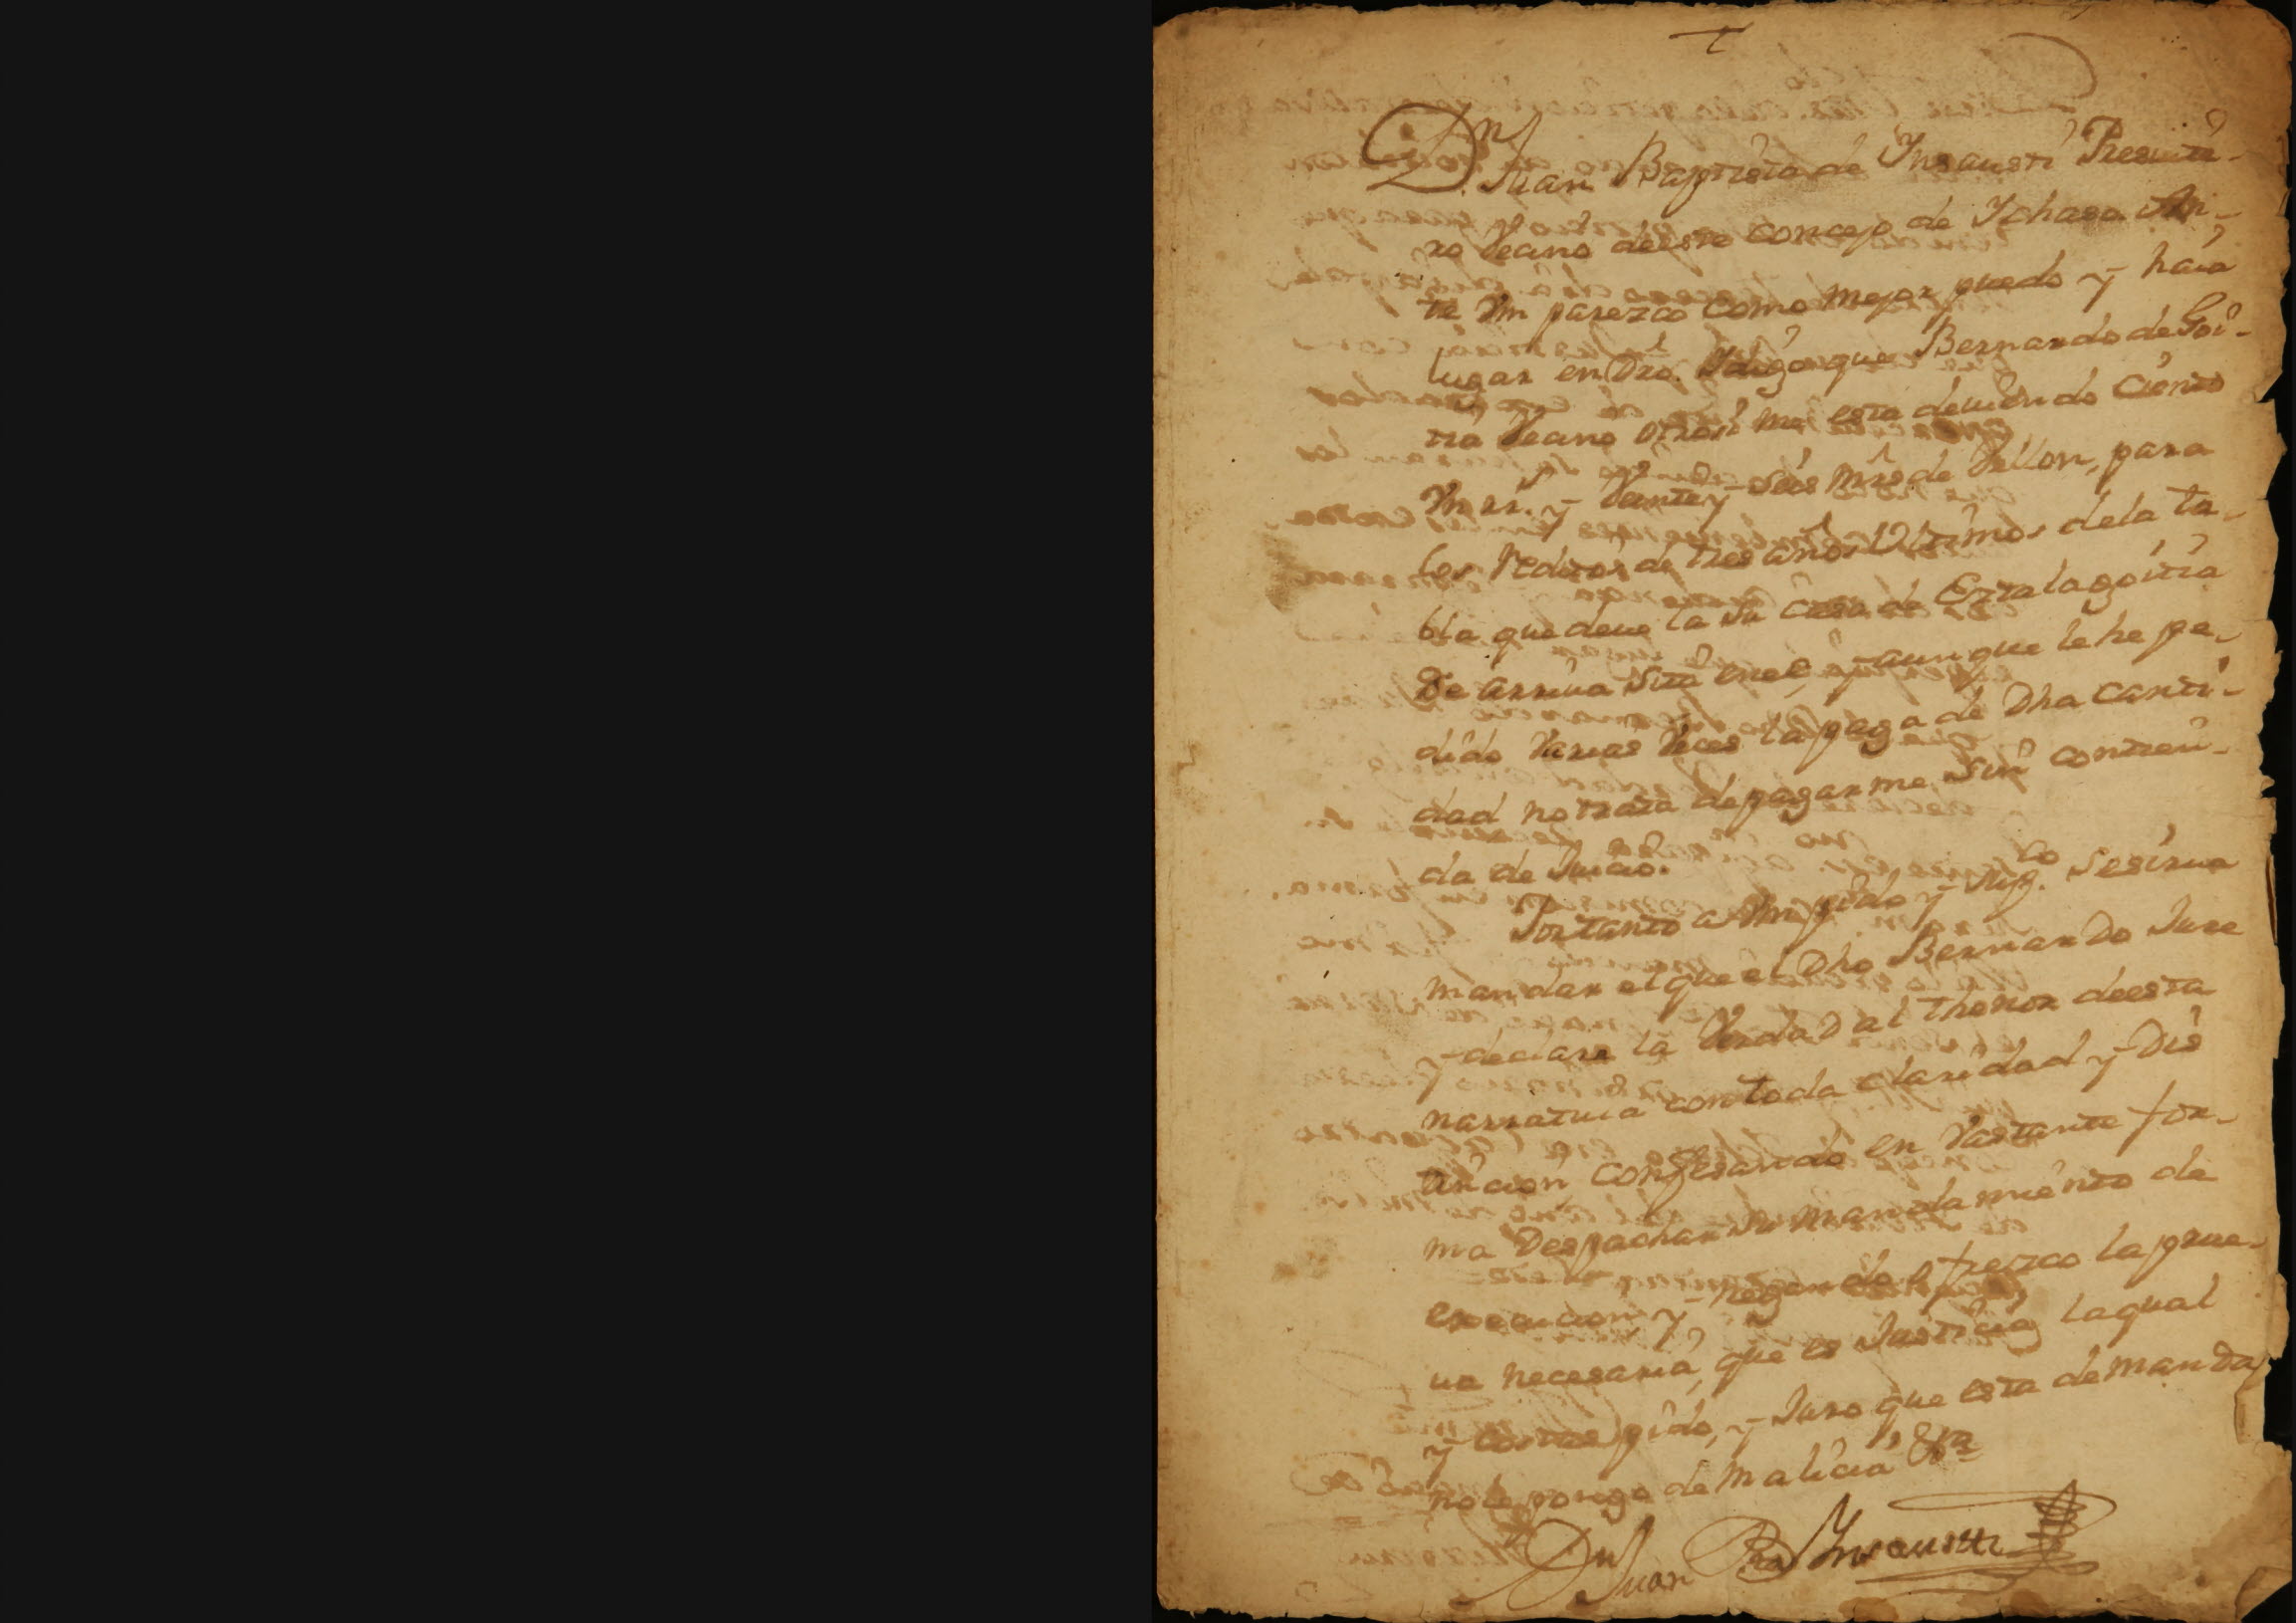 Dn Juan Baptista de Ynsausti Presuite-
ro Vecino deeste concejo de Ychaso An-
te Vm parezco como mejor puedo y haia
lugar en Dro. Ydigo que Bernardo de Goi-
tia Vecino otrosi me esta deuiendo Ciento
Vn rrs. y Veinte y seis mrs de Vellon, para
los reditos de tres años Vltimos dela ta-
bla que deue la su casa de Ezalagoitia
De arriua sita enel, y aunque le he pe-
dido Varias Veces la paga de Dha canti-
dad no trata de pagarme sin contien-
da de Juicio.
Portanto a Vm pido y supco. se sirua
mandar el que el Dho Bernardo Jure
y declare la Verdad al thenor deesta
narratiua con toda claridad y Dis
tincion confesando en Vastante for-
ma Despachar su mandamiento de
execucion y negando ofrezco la prue-
ua necesaria, que es Justicia laqual
y costas pido, y Juro que esta demanda
no le pongo de malicia &ra
Dn Juan Bta Ynsausti